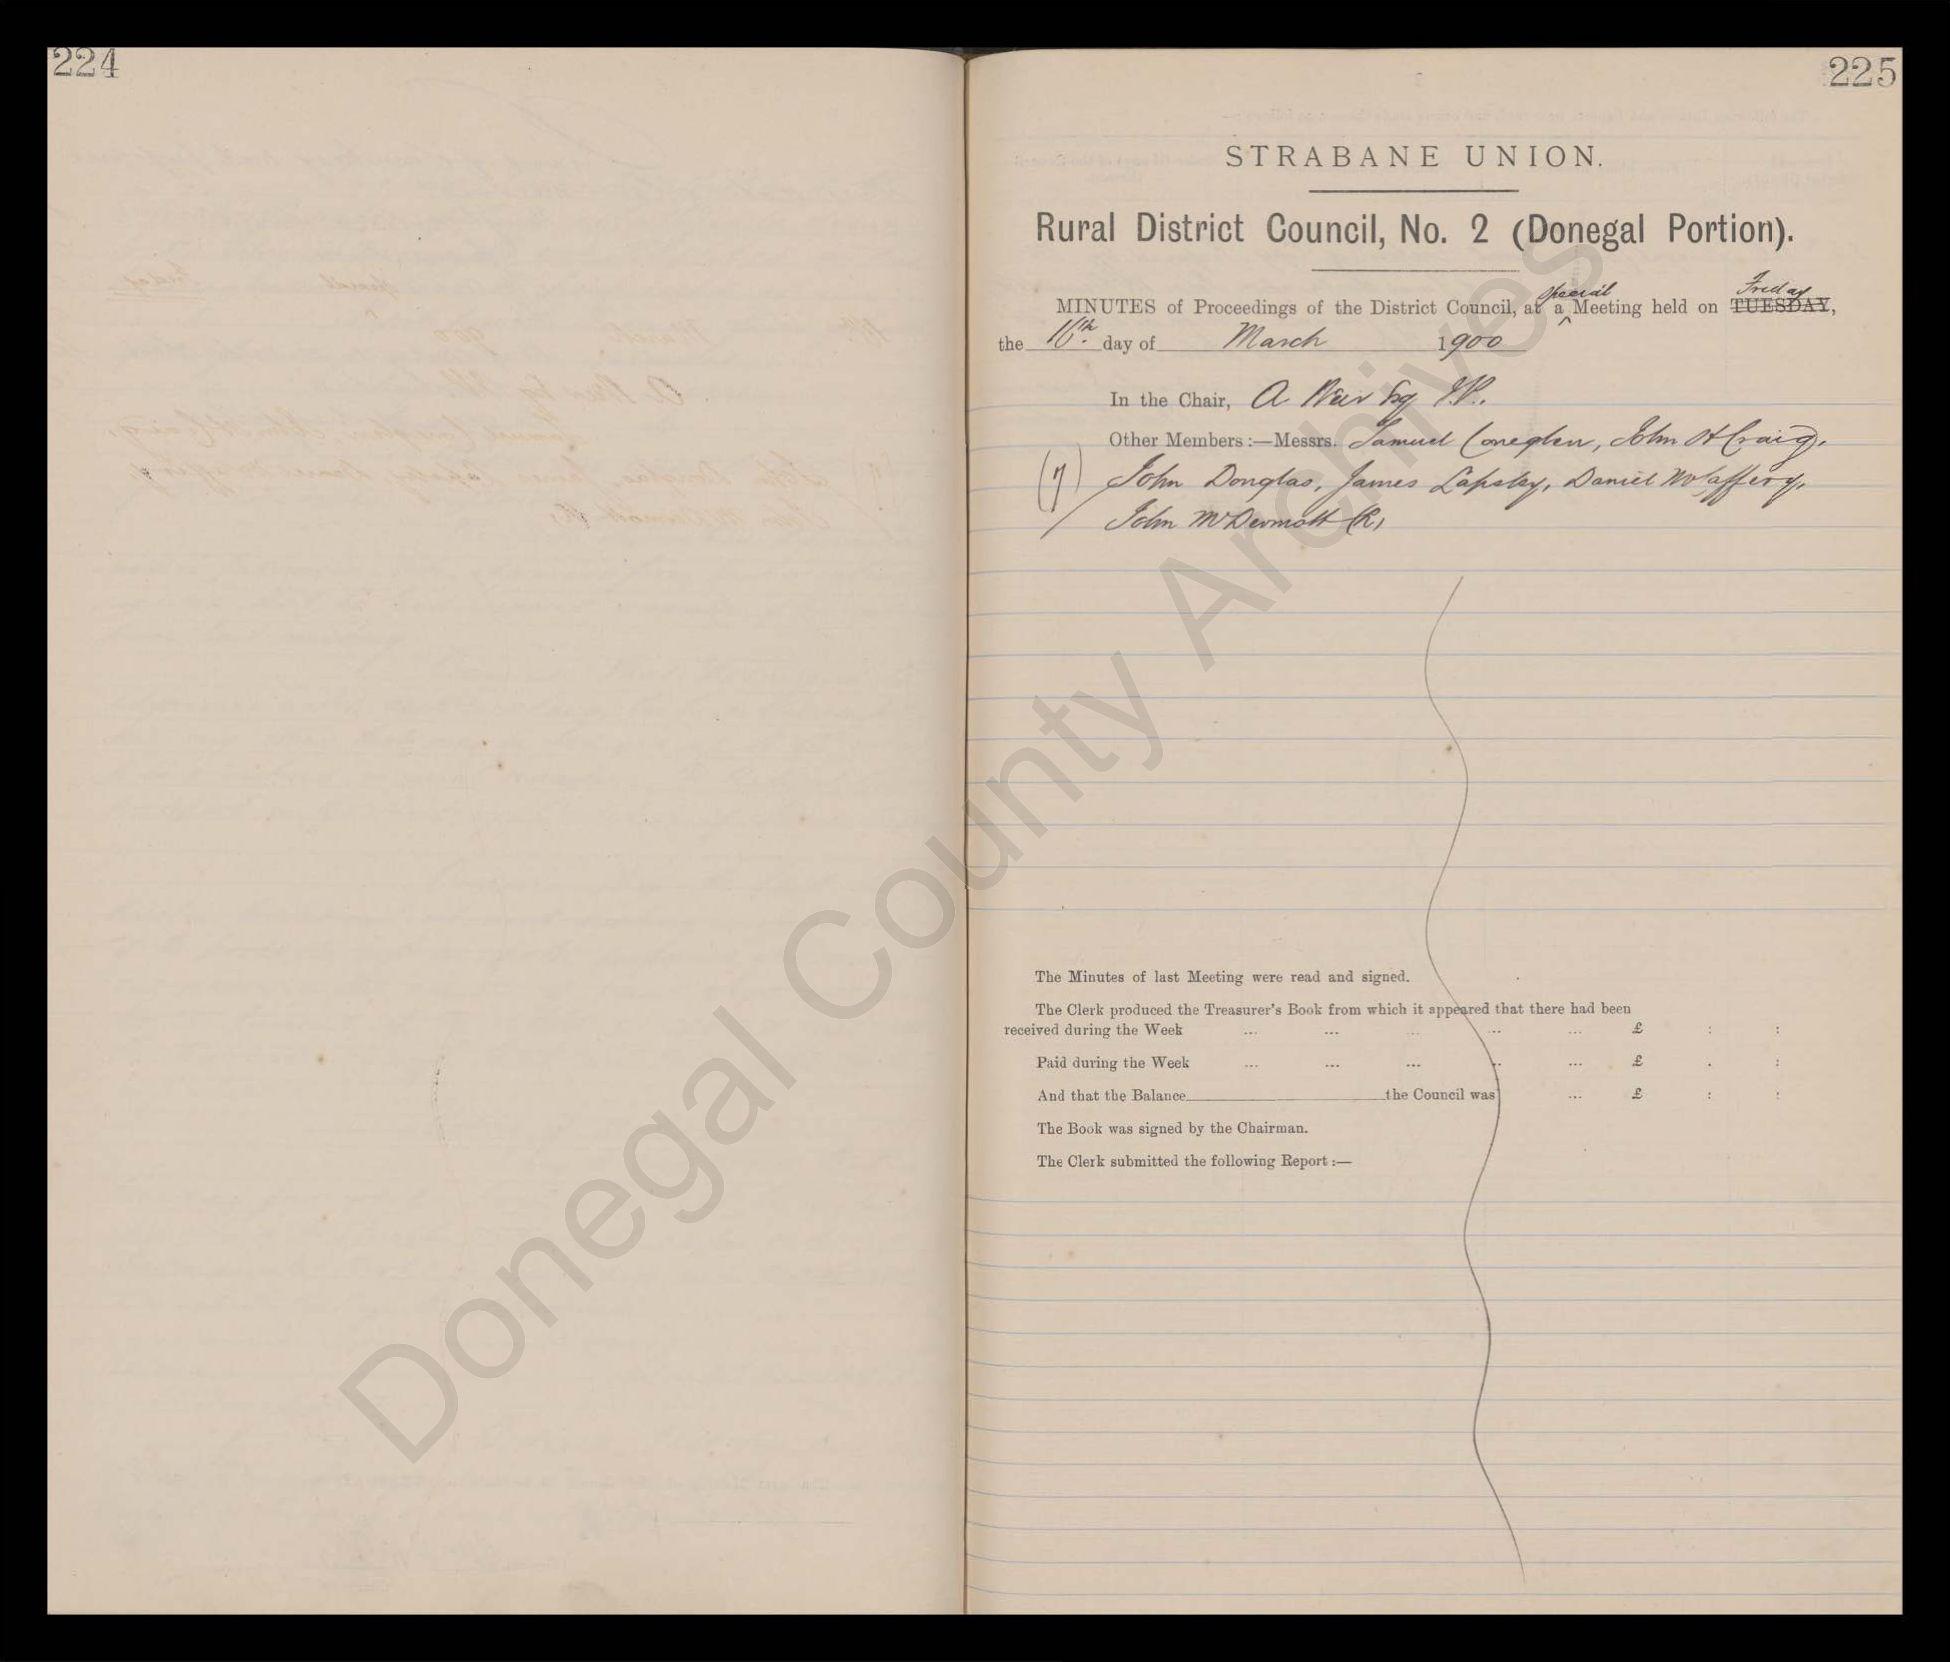 224
225
STRABANE UNION.
Rural District Council, No. 2 (Donegal Portion).
special Friday
MINUTES of Proceedings of the District Council, at a ^ Meeting held on TUESDAY,
the 16th. day of March 1900
In the Chair, A Weir Esq J.P.
Other Members :—Messrs. Samuel Coneghen, John H Craig,
(7) John Douglas, James Lapsley, Daniel McCafferty,
John McDermott (R)
The Minutes of last Meeting were read and signed.
The Clerk produced the Treasurer's Book from which it appeared that there had been
received during the Week ... ... ... ... ... £ : :
Paid during the Week ... ... ... ... ... £ . :
And that the Balance the Council was ... £ : :
The Book was signed by the Chairman.
The Clerk submitted the following Report :—
Donegal County Archives